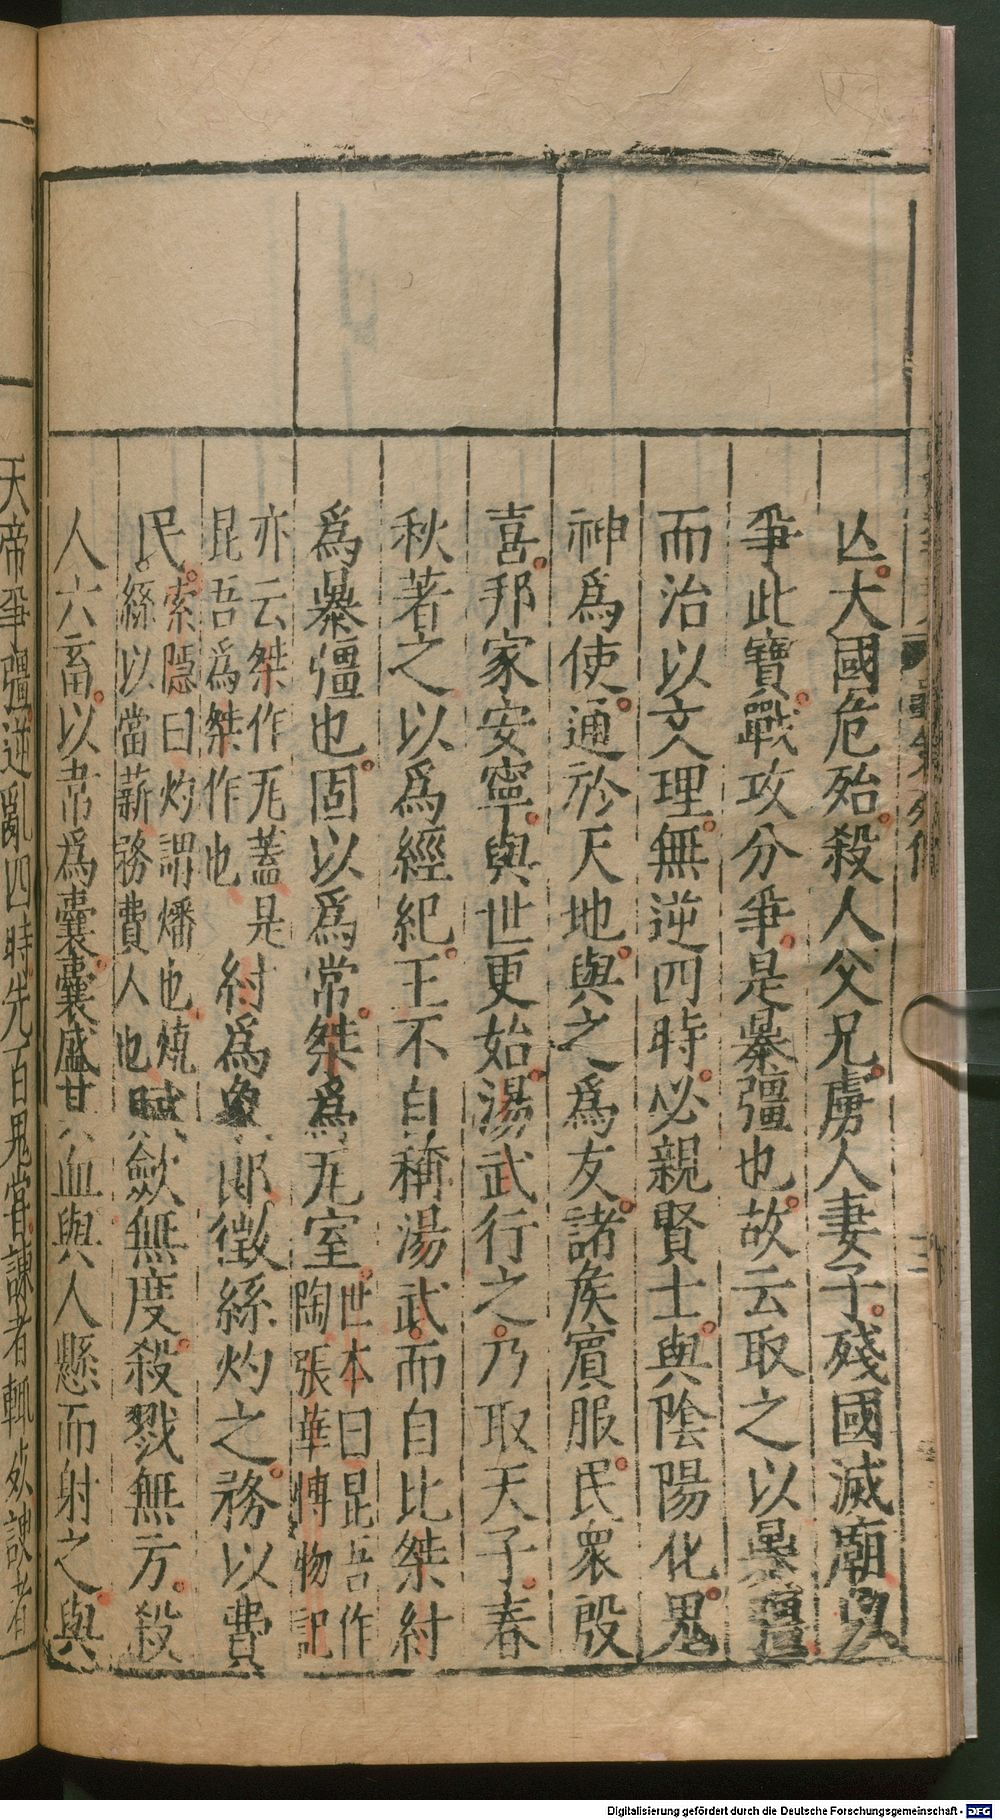 亾大國危殆殺人父兄虜人妻子殘國滅廟
爭此寶戰攻分爭是暴彊也故云取之以暴彊
而治以文理無逆四時必親賢士與陰陽化鬼
神爲使通於天地與之爲友諸矦賓服民衆殷
喜邦家安寧與世更始湯武行之乃取天子春
秋著之以爲經紀王不自稱湯武而自比桀紂
爲暴彊也固以爲常桀爲瓦室世本曰昆吾作
陶張華博物記
亦云桀作瓦蓋是
昆吾爲桀作也
紂爲象郎徵絲灼之務以費
民索隱曰灼謂燔也燒
絲以當薪務費人也
賦歛無度殺戮無方殺
人六畜以韋爲囊囊盛其血與人懸而射之與
天帝爭彊逆亂四時先百鬼嘗諫者輒死諛者
Digitalisierung gefördert durch die Deutsche Forschungsgemeinschaft - DFG